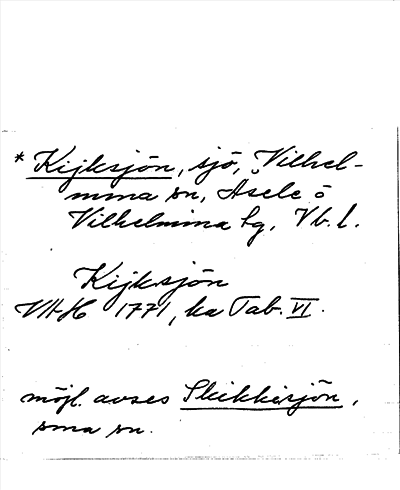 * Kijksjön, sjö, Vilhel-
mina sn, Åsele o
Vilhelmina tg, Vb. l.
Kijksjön
1771, ka Tab. VI.
möjl. avses Skikkisjön,
sma sn.